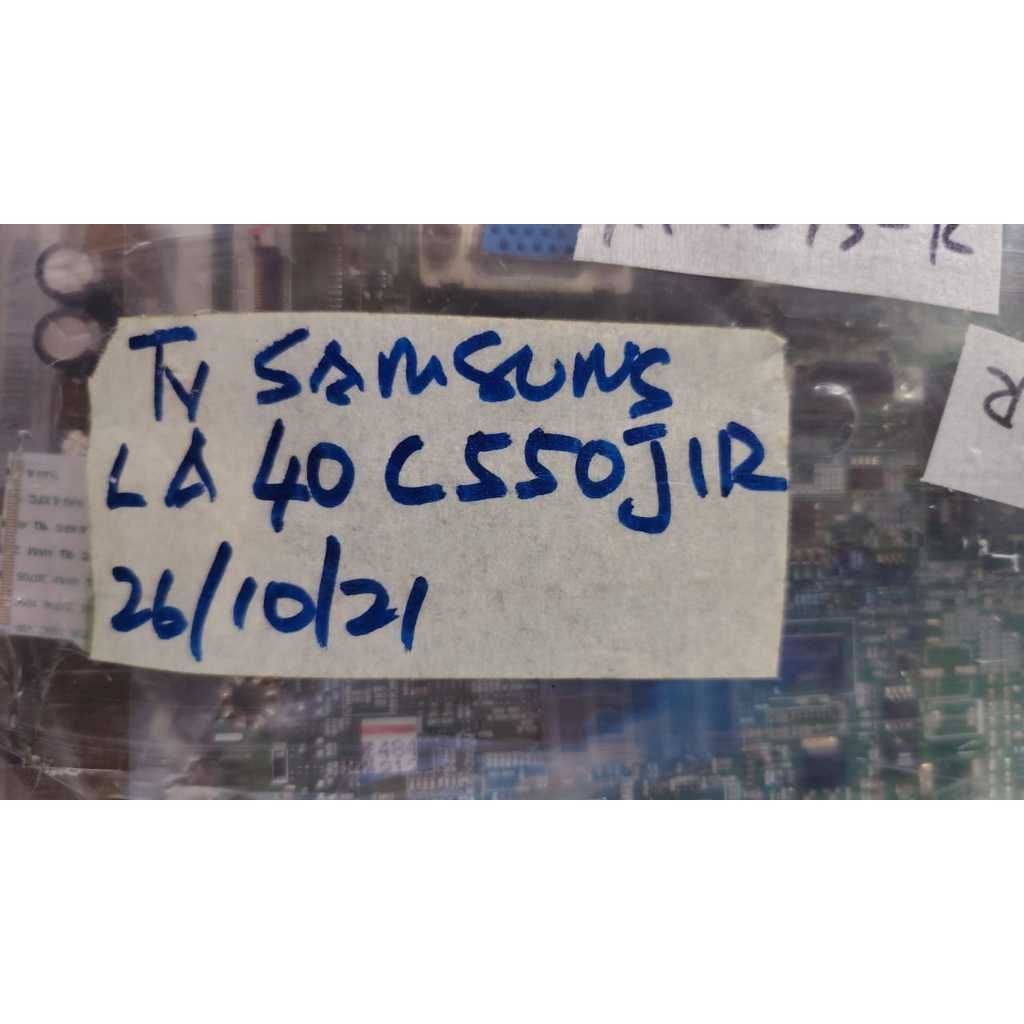 TV SAMSUNG
LA 40 C550J1R
26/10/21